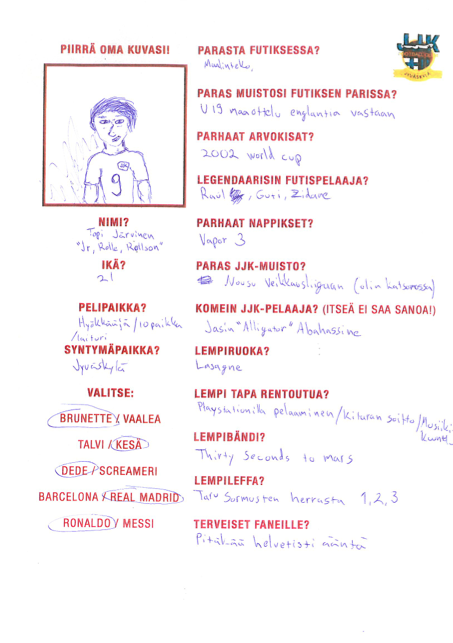 PIIRRÄ OMA KUVASI!
9
NIMI?
Topi Järvinen
"Jr, Rolle, Rollson"
IKÄ?
21
PELIPAIKKA?
Hyökkääjä / 10 paikka
/ laituri
SYNTYMÄPAIKKA?
Jyväskylä
VALITSE:
BRUNETTE / VAALEA
TALVI / KESÄ
DEDE / SCREAMERI
BARCELONA / REAL MADRID
RONALDO / MESSI
JJK
JYVÄSKYLÄ
PARASTA FUTIKSESSA?
Maalinteko,
PARAS MUISTOSI FUTIKSEN PARISSA?
U19 maaottelu englantia vastaan
PARHAAT ARVOKISAT?
2002 world cup
LEGENDAARISIN FUTISPELAAJA?
Raul, Guti, Zidane
PARHAAT NAPPIKSET?
Vapor 3
PARAS JJK-MUISTO?
Nousu Veikkausliigaan (olin katsomossa)
KOMEIN JJK-PELAAJA? (ITSEÄ EI SAA SANOA!)
Jasin "Alligator" Abahassine
LEMPIRUOKA?
Lasagne
LEMPI TAPA RENTOUTUA?
Playstationilla pelaaminen / kitaran soitto / Musiikin
kuunt.
LEMPIBÄNDI?
Thirty Seconds to mars
LEMPILEFFA?
Taru Sormusten herrasta 1, 2, 3
TERVEISET FANEILLE?
Pitäkää helvetisti ääntä